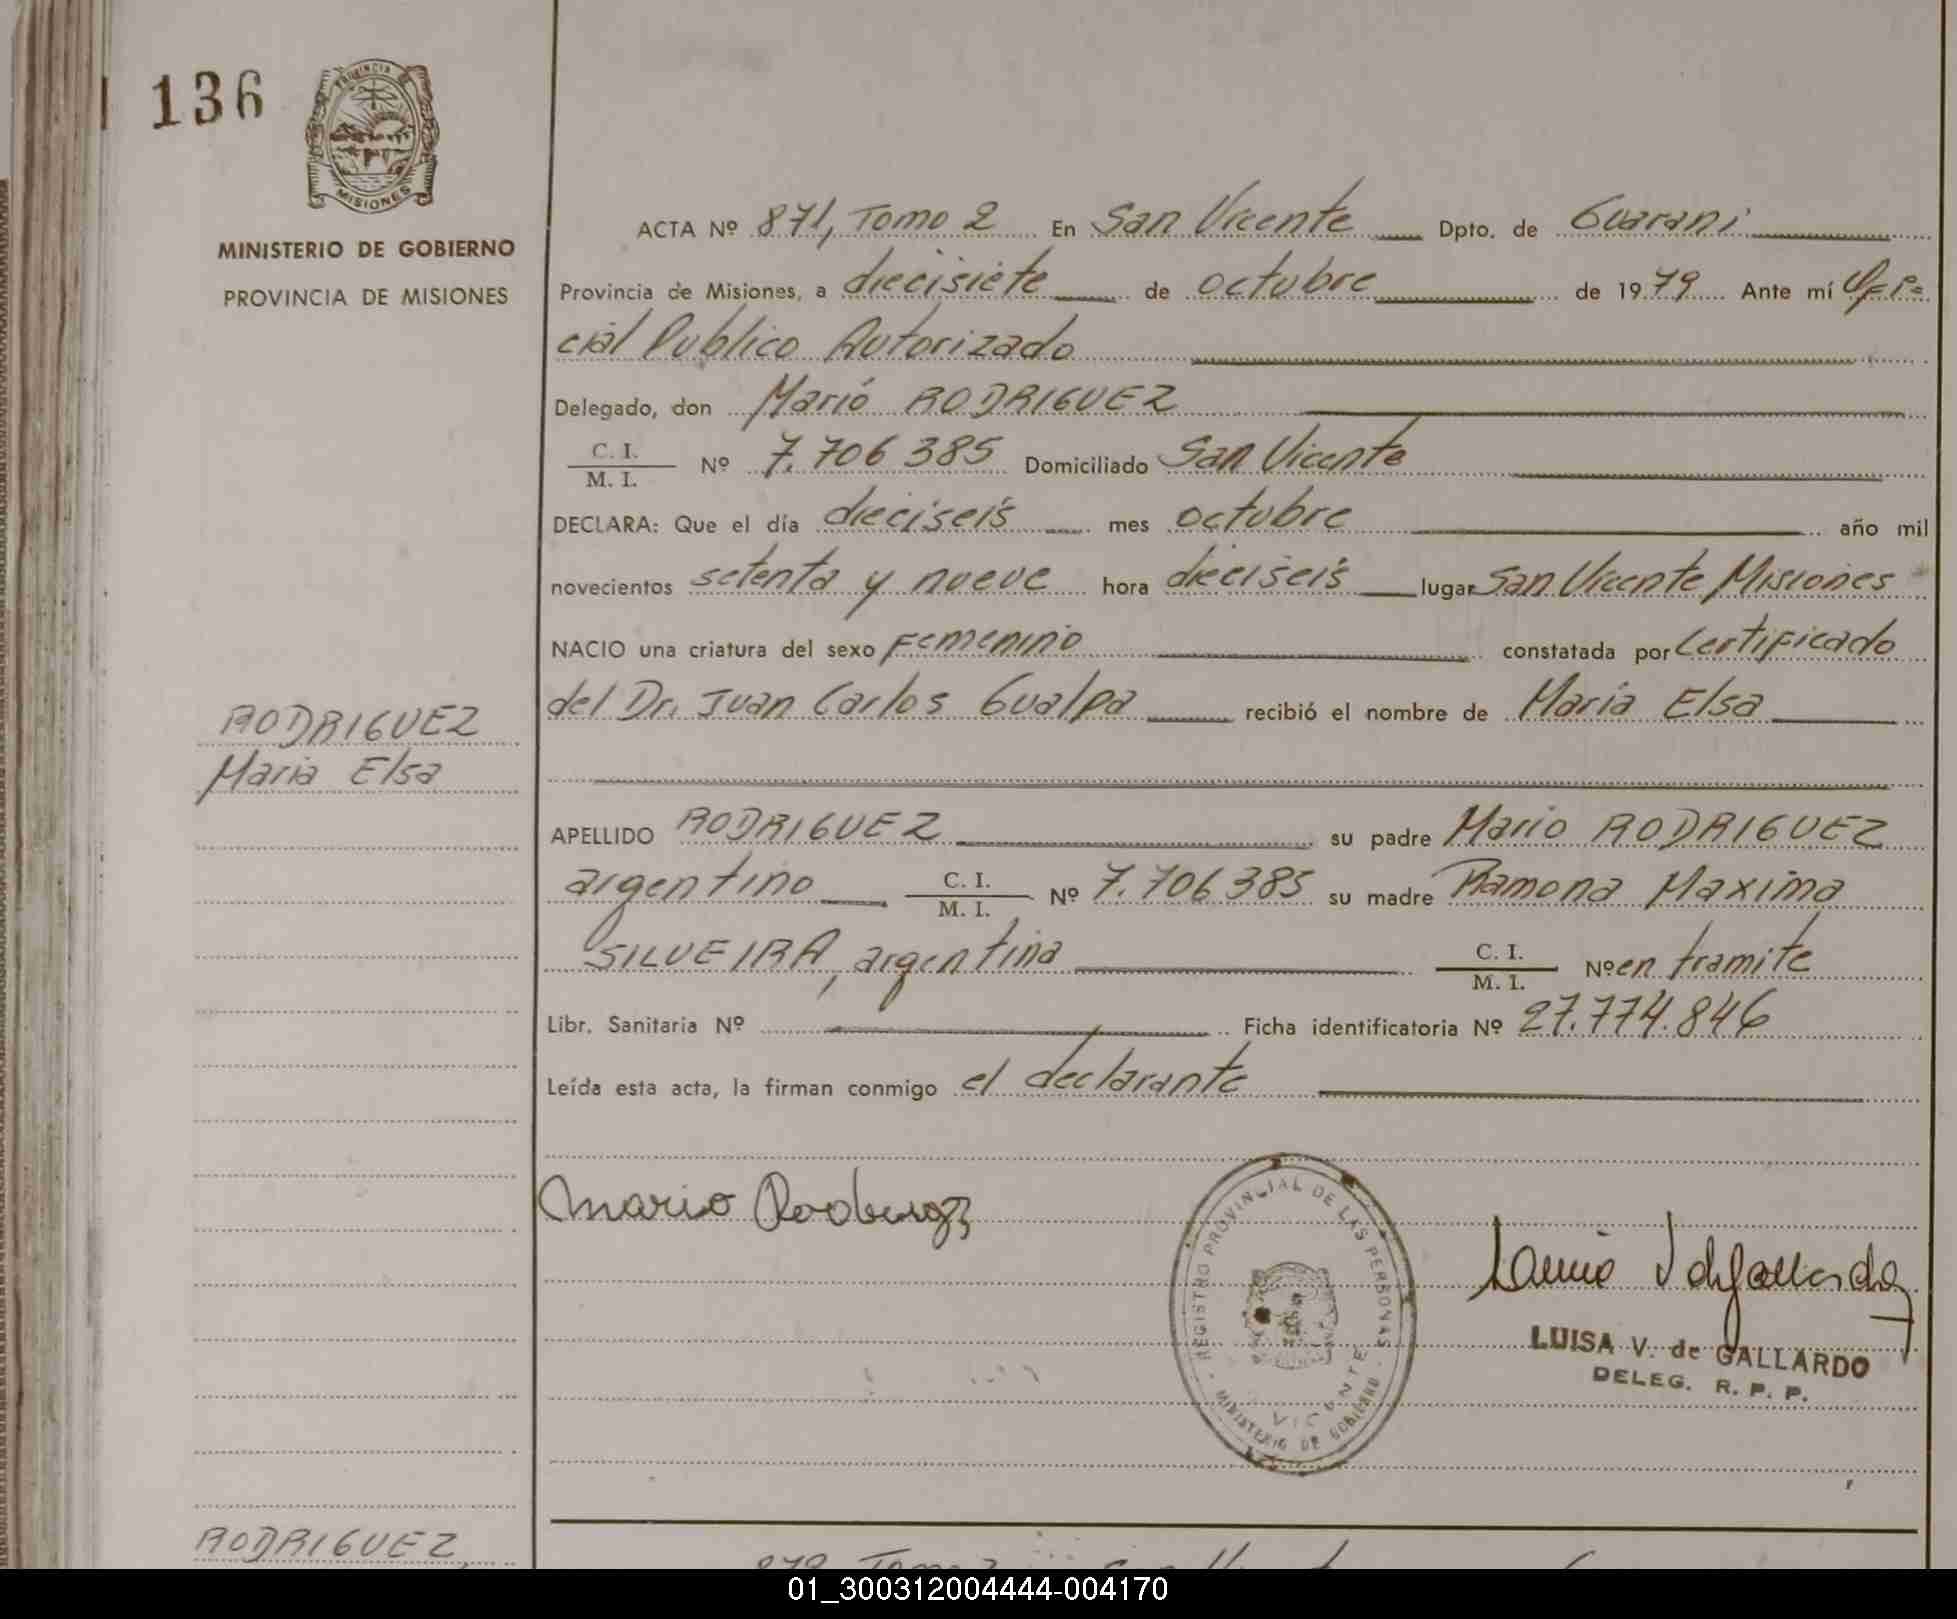 136
PROVINCIA DE
MISIONES
MINISTERIO DE GOBIERNO
PROVINCIA DE MISIONES
ACTA Nº 871, Tomo 2 En San Vicente Dpto. de Guarani
Provincia de Misiones, a diecisiete de octubre de 1979 Ante mí Ofi=
cial Publico Autorizado
Delegado, don Marió RODRIGUEZ
C. I.
M. I. Nº 7.706 385 Domiciliado San Vicente
DECLARA: Que el día dieciseis mes octubre año mil
novecientos setenta y nueve hora dieciseis lugar San Vicente Misiones
NACIO una criatura del sexo Femenino constatada por Certificado
del Dr. Juan Carlos Gualpa recibió el nombre de María Elsa
RODRIGUEZ
Maria Elsa
APELLIDO RODRIGUEZ su padre Mario RODRIGUEZ
argentino C. I.
M. I. Nº 7.706 385 su madre Ramona Maxima
SILVEIRA, argentina C. I.
M. I. Nº en tramite
Libr. Sanitaria Nº Ficha identificatoria Nº 27.774.846
Leída esta acta, la firman conmigo el declarante
Mario Rodriguez
REGISTRO PROVINCIAL DE LAS PERSONAS
VICENTE
MINISTERIO DE GOBIERNO
LUISA V. de GALLARDO
DELEG. R. P. P.
RODRIGUEZ,
01_300312004444-004170